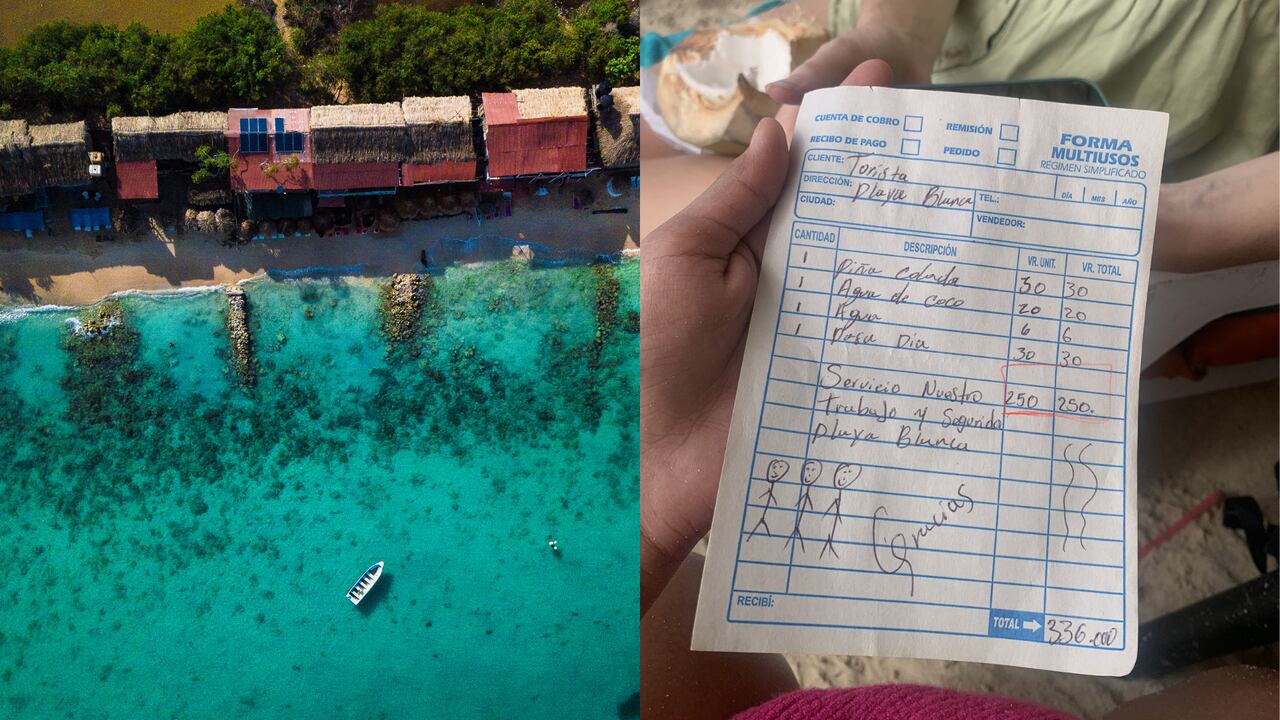 CUENTA DE COBRO REMISIÓN
RECIBO DE PAGO PEDIDO
FORMA
MULTIUSOS
RÉGIMEN SIMPLIFICADO
CLIENTE: Turista
DIRECCIÓN: Playa Blanca TEL.: DÍA MES AÑO
CIUDAD: VENDEDOR:
CANTIDAD DESCRIPCIÓN VR. UNIT. VR. TOTAL
1 Piña colada 30 30
1 Agua de coco 20 20
1 Agua 6 6
1 Pasa Dia 30 30
Servicio Nuestro 250 250.
Trabajo y Segurida
Playa Blanca
Gracias
RECIBÍ:
TOTAL 336.000